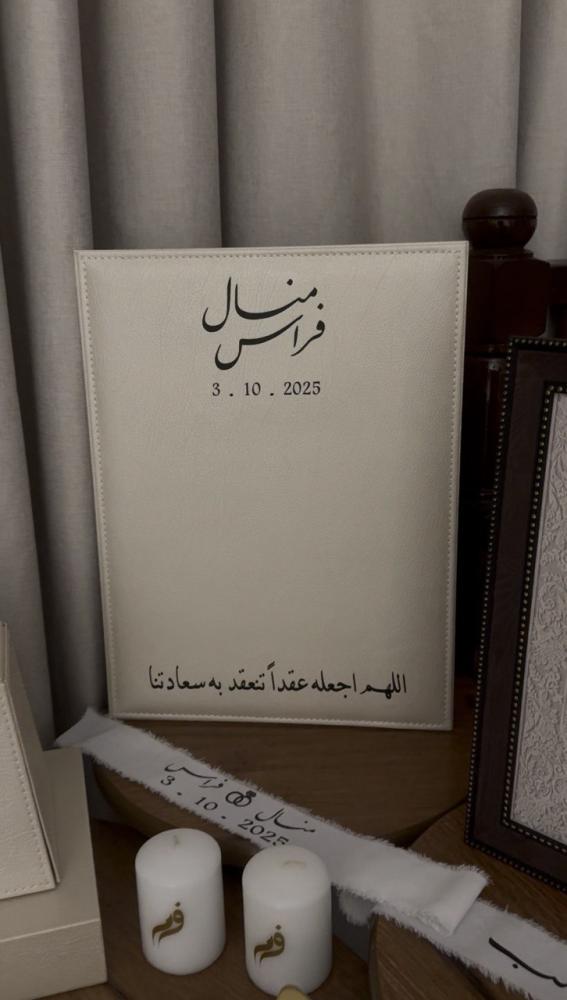 منال
فراس
3 . 10 . 2025
اللهم اجعله عقداً تنعقد به سعادتنا
منال فراس
3 . 10 . 2025